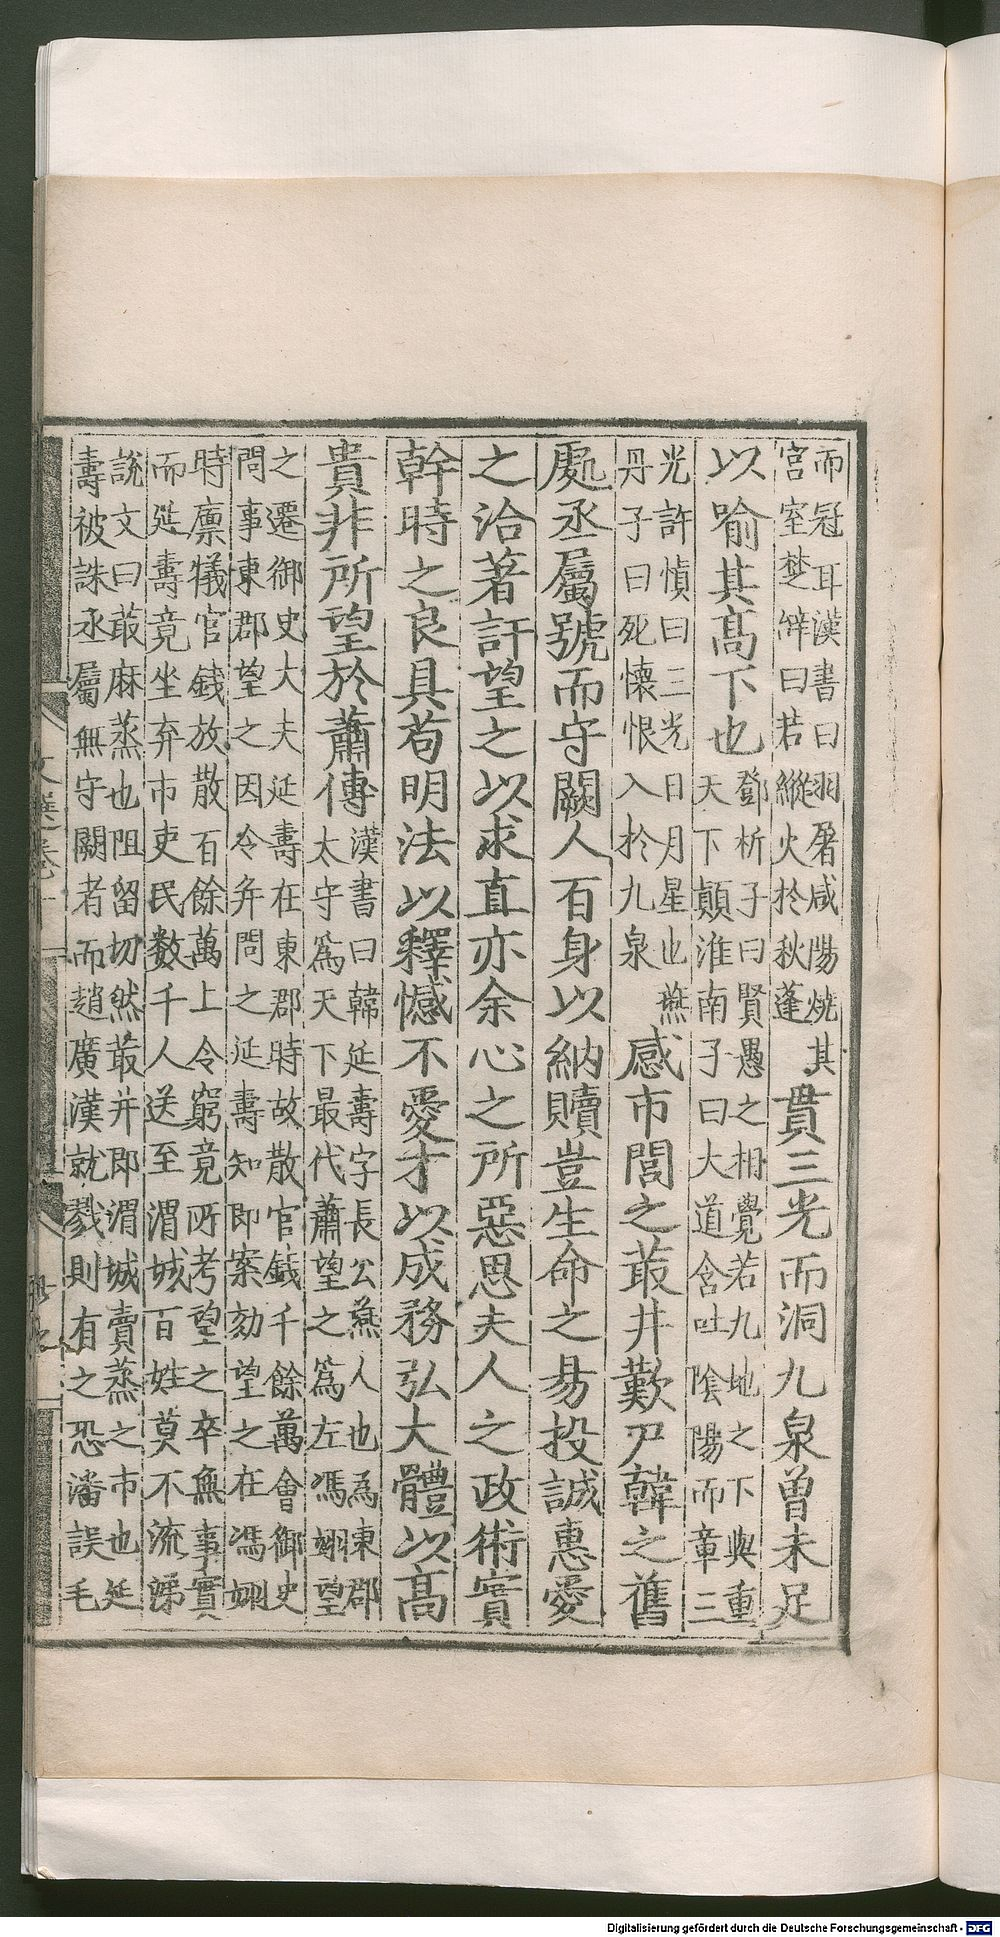 而冠耳漢書曰羽屠咸陽燒其
宮室楚辭曰若縱火於秋蓬
貫三光而洞九泉曾未足
以喻其高下也
鄧析子曰賢愚之相覺若九地之下與重
天下顛淮南子曰大道含吐陰陽而章三
光許慎曰三光日月星也燕
丹子曰死懷恨入於九泉
感市閭之菆井歎尹韓之舊
處丞屬號而守闕人百身以納贖豈生命之易投誠惠愛
之洽著訐望之以求直亦余心之所惡思夫人之政術實
幹時之良具苟明法以釋憾不愛才以成務弘大體以高
貴非所望於蕭傅
漢書曰韓延壽字長公燕人也為東郡
太守為天下最代蕭望之為左馮翊望
之遷御史大夫延壽在東郡時故散官錢千餘萬會御史
問事東郡望之因令并問之延壽知即案劾望之在馮翊
時廩犧官錢放散百餘萬上令窮竟所考望之卒無事實
而延壽竟坐弃市吏民數千人送至渭城百姓莫不流涕
說文曰菆麻蒸也阻留切然菆井即渭城賣蒸之市也延
壽被誅丞屬無守闕者而趙廣漢就戮則有之恐潘誤毛
Digitalisierung gefördert durch die Deutsche Forschungsgemeinschaft - DFG